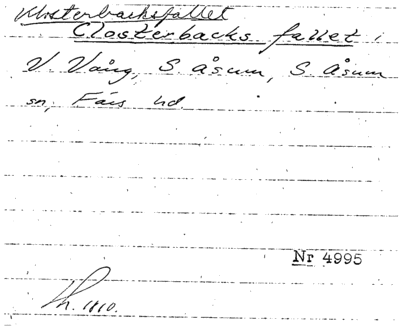 Klosterbacksfallet
Closterbacks fallet i
V Vång, S Åsum, S Åsum
sn, Färs hd.
Nr 4995
Lh. 1810.